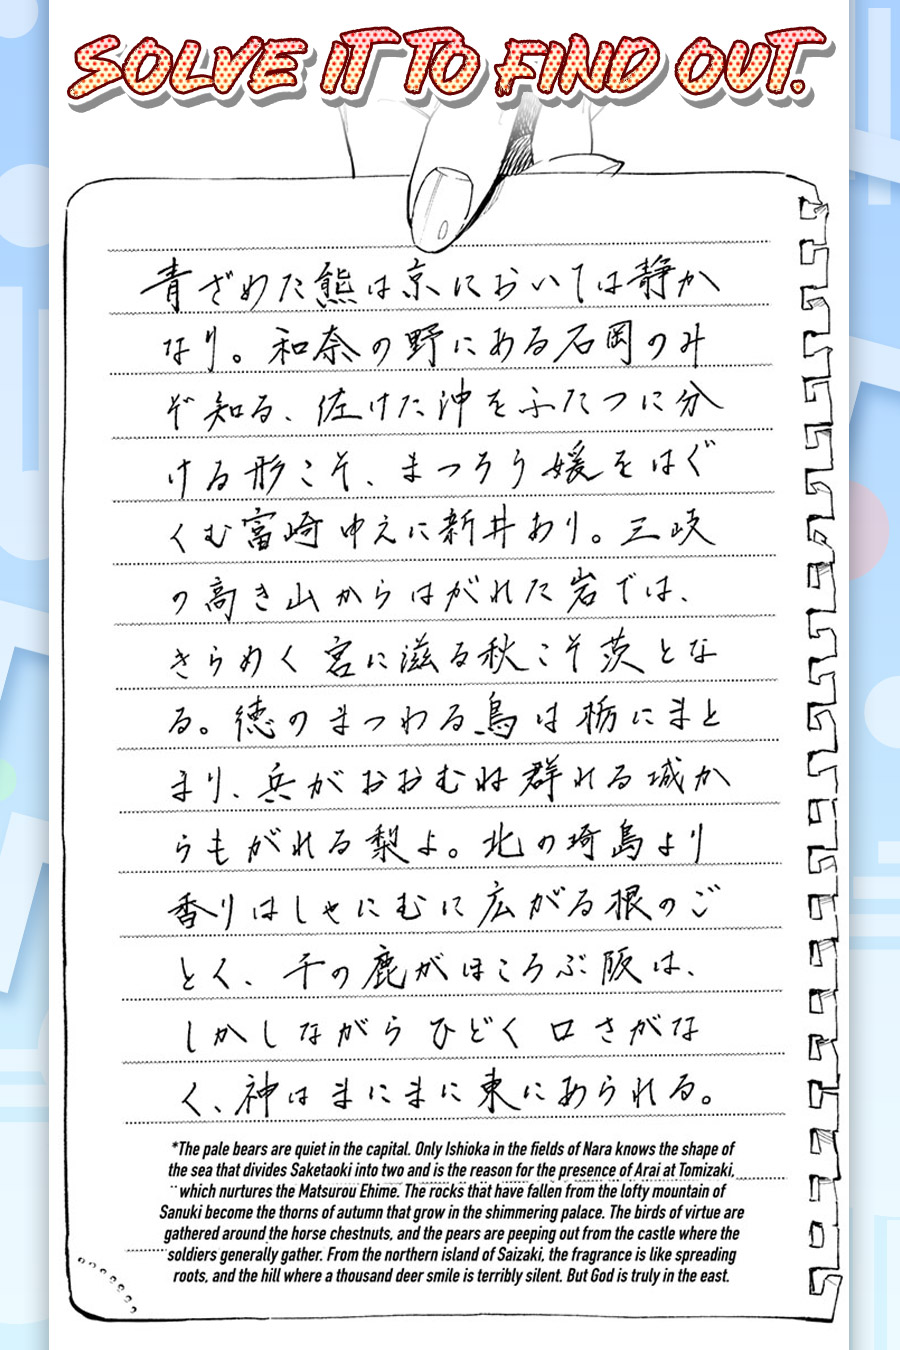 SOLVE IT TO FIND OUT.
青ざめた熊は京においては静か
なり。和奈の野にある石岡のみ
ぞ知る、佐けた沖をふたつに分
ける形こそ、まつろう媛をはぐ
くむ富崎ゆえに新井あり。三岐
の高き山からはがれた岩では、
きらめく宮に滋る秋こそ茨とな
る。徳のまつわる鳥は栃にまと
まり、兵がおおむね群れる城か
らもがれる梨よ。北の埼島より
香りはしゃにむに広がる根のご
とく、千の鹿がほころぶ阪は、
しかしながらひどく口さがな
く、神はまにまに東にあられる。
*The pale bears are quiet in the capital. Only Ishioka in the fields of Nara knows the shape of
the sea that divides Saketaoki into two and is the reason for the presence of Arai at Tomizaki,
which nurtures the Matsurou Ehime. The rocks that have fallen from the lofty mountain of
Sanuki become the thorns of autumn that grow in the shimmering palace. The birds of virtue are
gathered around the horse chestnuts, and the pears are peeping out from the castle where the
soldiers generally gather. From the northern island of Saizaki, the fragrance is like spreading
roots, and the hill where a thousand deer smile is terribly silent. But God is truly in the east.